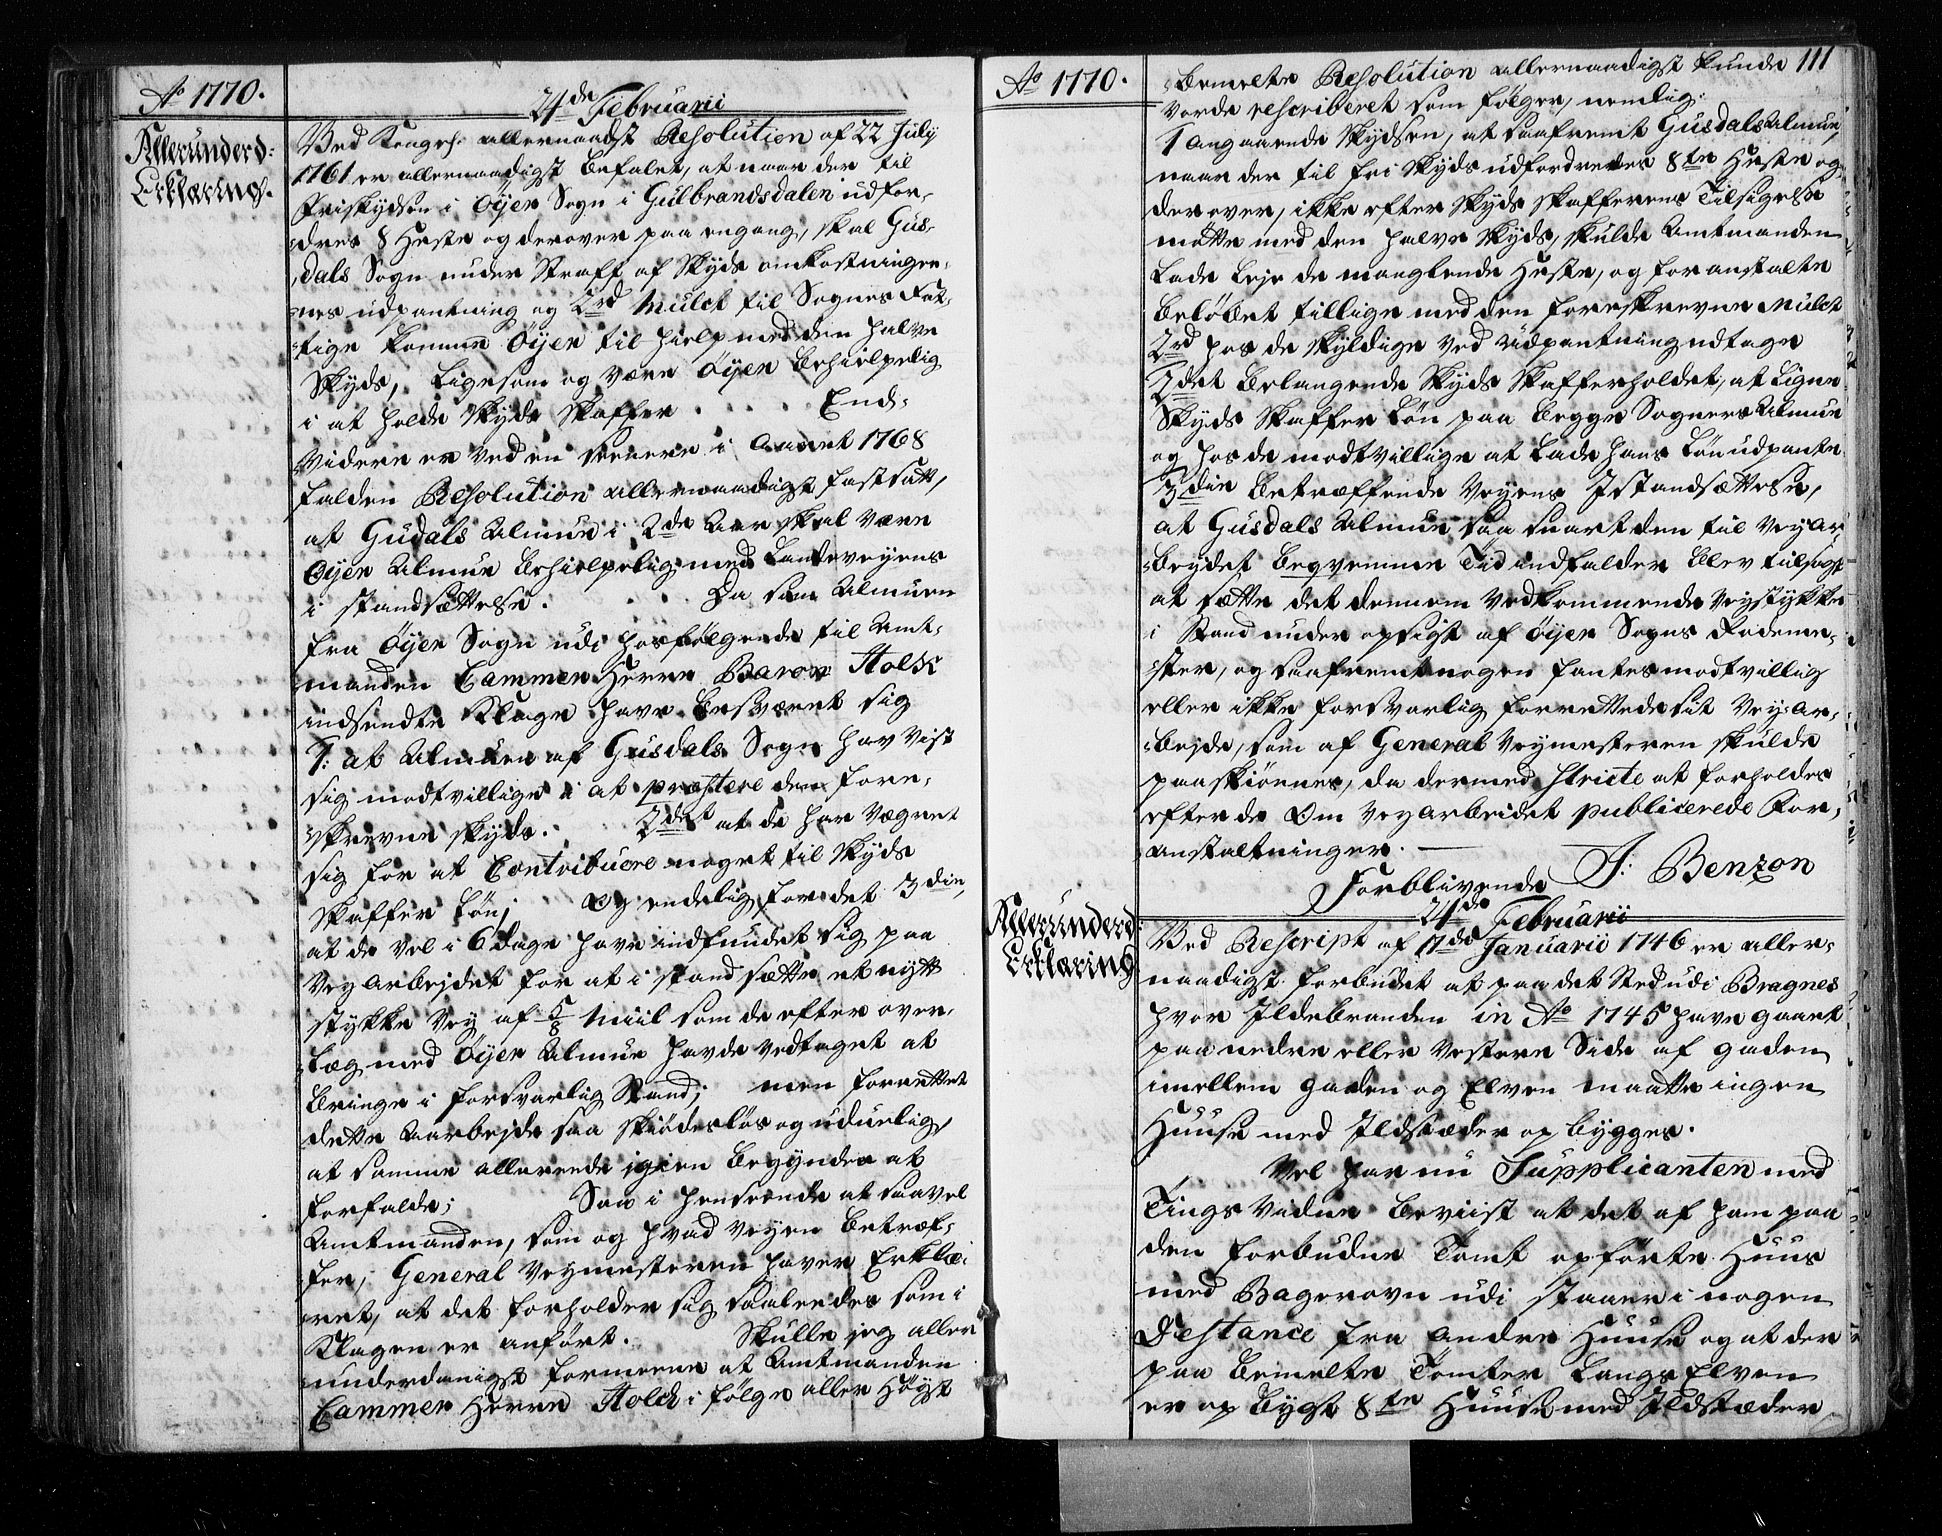 Ao 1770.
24de Februarii
Allerunderd:
Erklæring.
Ved Kongel. allernaadst Resolution af 22 July
1761 er allernaadigst befalet, at naar der til
Friskydsen i Öyer Sogn i Gulbrandsdalen udfor-
dres 8 Heste og derover paa engang, skal Gus-
dals Sogn under Straff af Skyds omkostningen-
nes udpantning og 2rd Mulct til Sognes Fat-
tige komme Öyer til Hielp med den halve
Skyds, ligesom og være Öyer behielpelig
i at holde Skyds skaffer . . . . End-
videre er ved en senere i Aaret 1768
falden Resolution allernaadigst fastsatt,
at Gudals Almue i 2de Aar skal være
Öyer Almue behielpelig med Landeveyens
i standsættelse. Da som Almuen
fra Öyer Sogn udi hosfölgende til Amt-
manden Cammer Herre Baron Holck
indsendte Klage have besværet sig
1: at Almuen af Gusdals Sogn har vist
sig modtvillige i at præstere den fore-
skrevne skyds. 2det at de har vægret
sig for at Contribuere noget til Skyds
skaffer Lön; Og endelig for det 3die,
at de vel i 6 dage have indfundet sig paa
Vey Arbejdet for at i stand sætte et nytt
stykke Vey af 5/8 Miil som de efter over-
læg med Öyer Almue havde vedtaget at
bringe i forsvarlig Stand; men forrettet
dette Aarbejde saa skiödeslös og uduelig,
at samme allerede igien begynder at
forfalde; Saa i henseende at saavel
Amtmanden, som og hvad Veyen betræf-
fer, General Veymesteren haver Erklæ-
ret, at det forholder sig saaledes som i
Klagen er anfört. Skulle jeg aller
underdanigst formeene at Amtmanden
Cammer Herre Holck i fölge aller Höyst
Ao 1770.
111
bemelte Resolution allernaadigst kunde
vorde rescriberet som fölger, nemlig:
1 angaaende Skydsen, at saafremt Gusdals Almue,
naar der til fri Skyds udfordredes 8te Heste og
derover, ikke efter Skyds skafferens Tilsigelse
mötte med den halve Skyds, skulde Amtmanden
lade leje de manglende Heste, og foranstalte
belöbet tillige med den foreskrevne Mulct
2rd hos de skyldige ved udpantning udtage
2det belangende Skyds Skafferholdet, at ligne
Skyds skaffer Lön paa begge Sognes Almue
og hos de modtvillige at lade hans Lön udpante
3die betræffende Veyens Istandsættelse,
at Gusdals Almue saa snart den til Vey Ar-
beydet beqvemme Tid indfalder blev tilsagt
at sætte det dennem vedkommende Veystykke
i Stand under opsigt af Öyer Sogns Rodeme-
ster, og saafremt nogen fantes modtvillig
eller ikke forsvarlig forrettede sit Vey-Ar-
bejde, som af General Veymesteren skulde
paaskiönnes, da dermed stricte at forholdes
efter de Om Veyarbeidet publicerede For-
anstaltninger.
Forblivende J: Benzon
24de Februarii
Allerunderd:
Erklæring
Ved Rescript af 17de Januarii 1746 er aller-
naadigst forbudet at paa det Sted udi Bragnes
hvor Ildebranden in Ao 1745 have gaaet
paa nedre eller Vestere Side af gaden
imellem gaden og Elven maatte ingen
Huuse med Ildstæder op bygges.
Vel har nu Supplicanten med
Tings Vidne beviist at det af ham paa
den forbudne Tomt opförte Huus
med Bagerovn udi staaer i nogen
Destance fra andre Huuse og at der
paa bemelte Tomter langs Elven
er op bygt 8te Huuse med Ildstæder